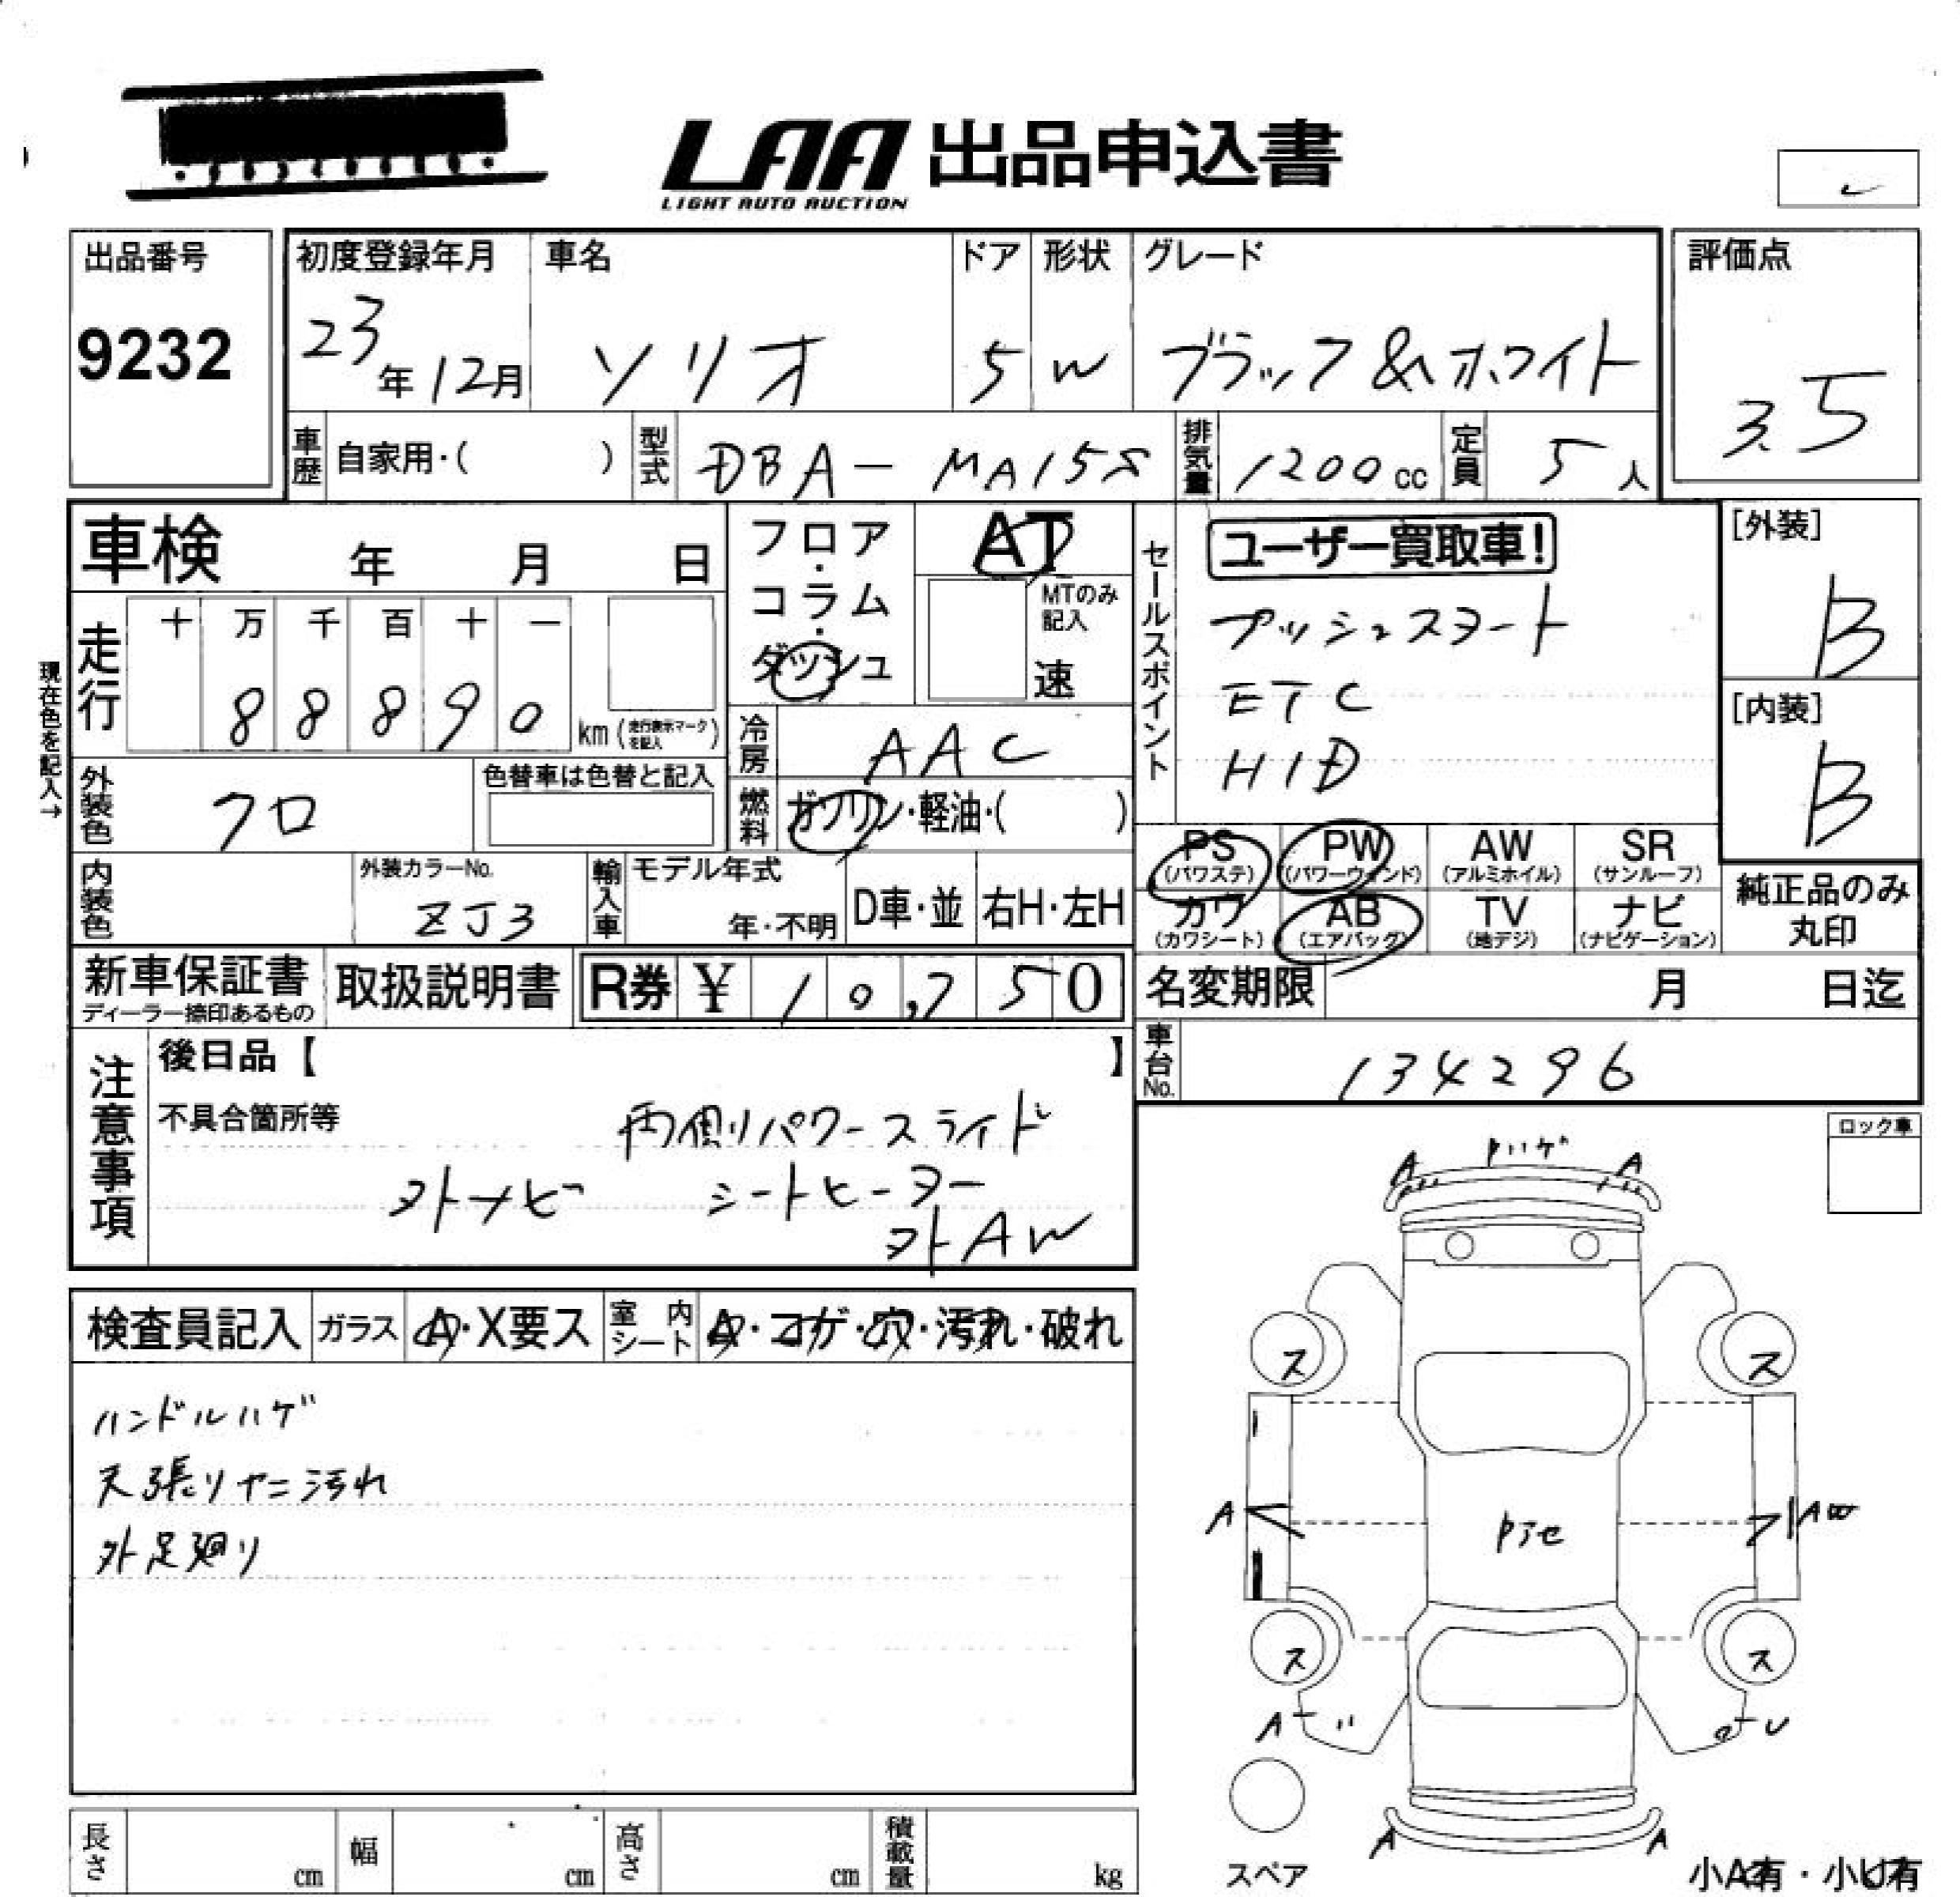 LAA 出品申込書
LIGHT AUTO AUCTION
出品番号
9232
初度登録年月
23年12月
車名
ソリオ
ドア
5
形状
W
グレード
ブラック&ホワイト
評価点
3.5
車歴 自家用・( )
型式 DBA-MA15S
排気量 1200cc
定員 5人
車検 年 月 日
走行 十 万 千 百 十 一
88890 km (走行表示マークを記入)
現在色を記入→
外装色 クロ
色替車は色替と記入
内装色
外装カラーNo.
ZJ3
フロア・コラム・ダッシュ
AT
MTのみ記入
速
冷房 AAC
燃料 ガソリン・軽油・( )
輸入車 モデル年式
年・不明
D車・並 右H・左H
セールスポイント
ユーザー買取車!
プッシュスタート
ETC
HID
[外装]
B
[内装]
B
PS (パワステ) PW (パワーウィンド) AW (アルミホイル) SR (サンルーフ)
カワ (カワシート) AB (エアバッグ) TV (地デジ) ナビ (ナビゲーション)
純正品のみ
丸印
新車保証書
ディーラー捺印あるもの
取扱説明書
R券 ¥ 10,750
名変期限 月 日迄
車台No. 134296
注意事項
後日品【 】
不具合箇所等
両側パワースライド
外ナビ シートヒーター
外AW
ロック車
検査員記入 ガラス A・X要ス 室内シート A・コゲ・穴・汚れ・破れ
ハンドルハゲ
天張りヤニ汚れ
外足廻り
A ハゲ A
ス ス
A AW
ス ス
A
A A
スペア
小A有・小U有
長さ cm 幅 cm 高さ cm 積載量 kg